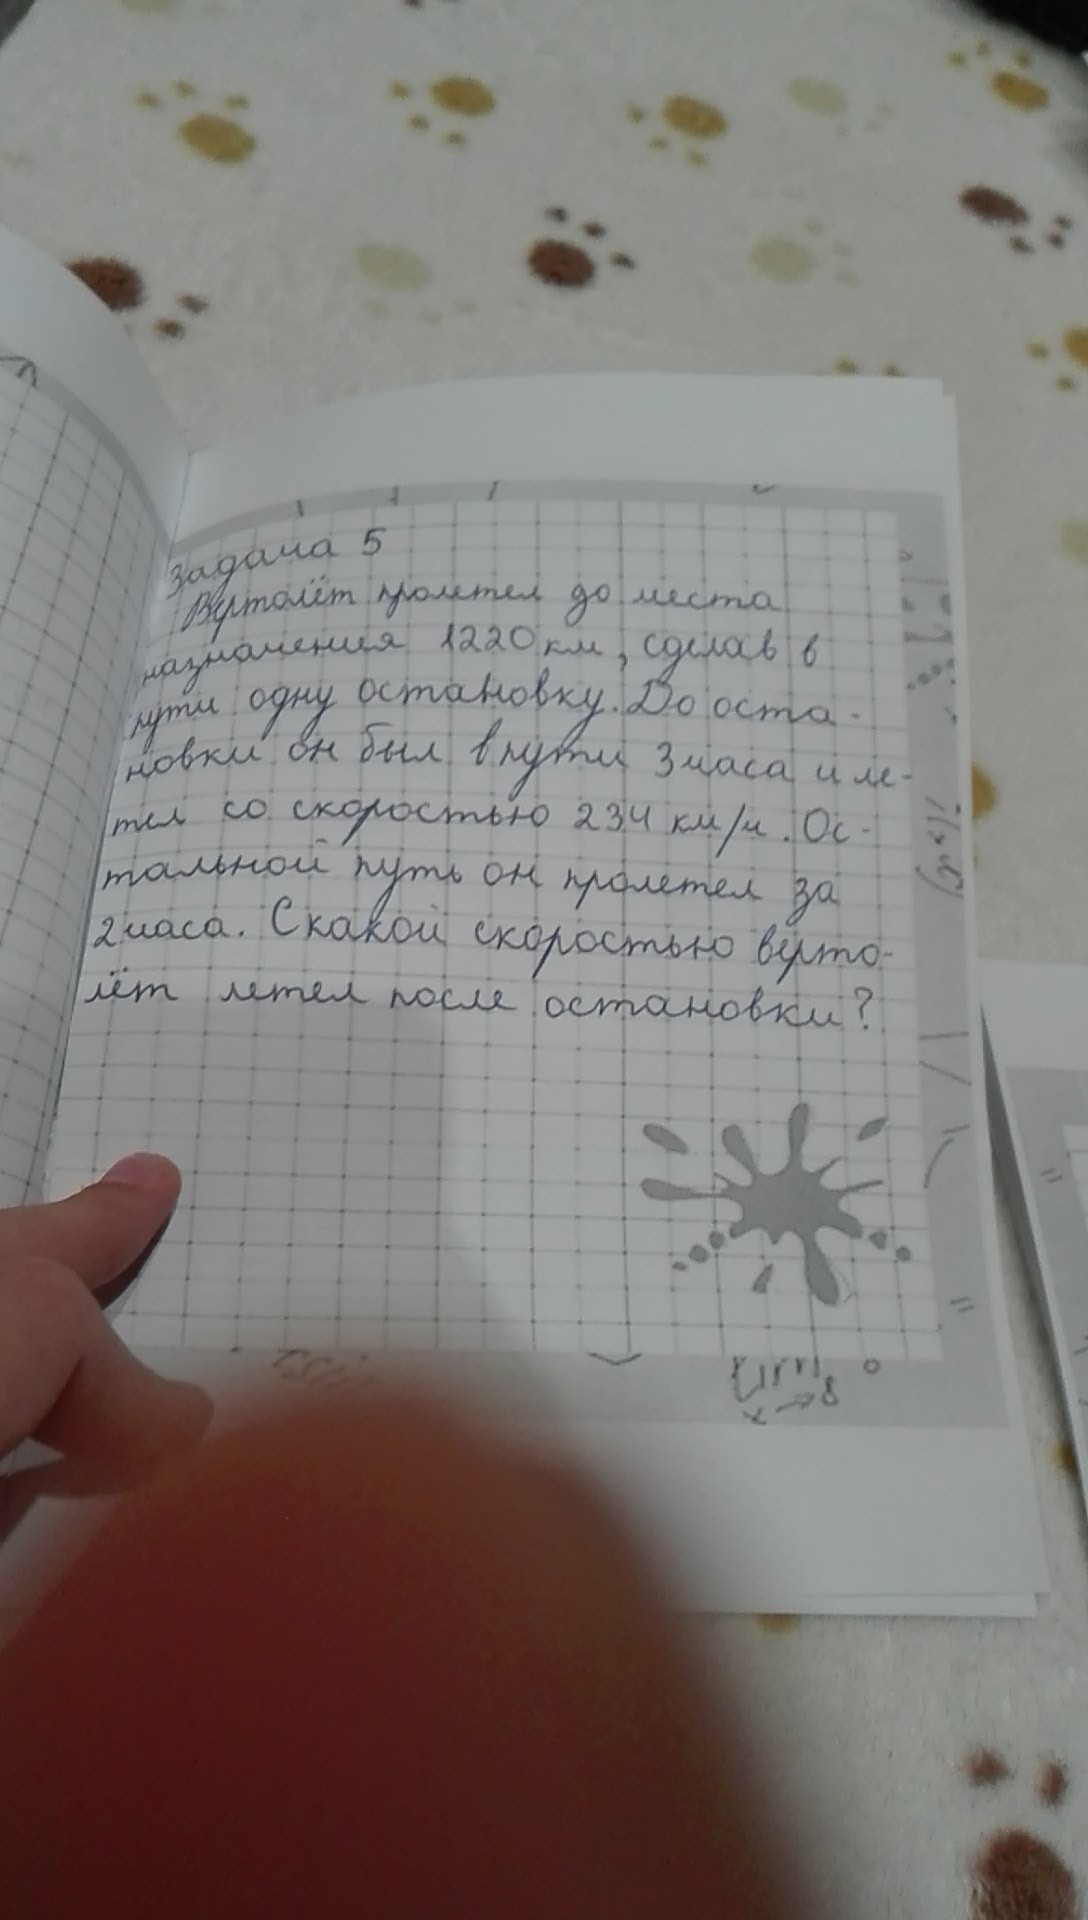 Задача 5
Вертолёт пролетел до места
назначения 1220 км, сделав в
пути одну остановку. До оста-
новки он был в пути 3 часа и ле-
тел со скоростью 234 км/ч. Ос-
тальной путь он пролетел за
2 часа. С какой скоростью верто-
лёт летел после остановки?
lim
x→8